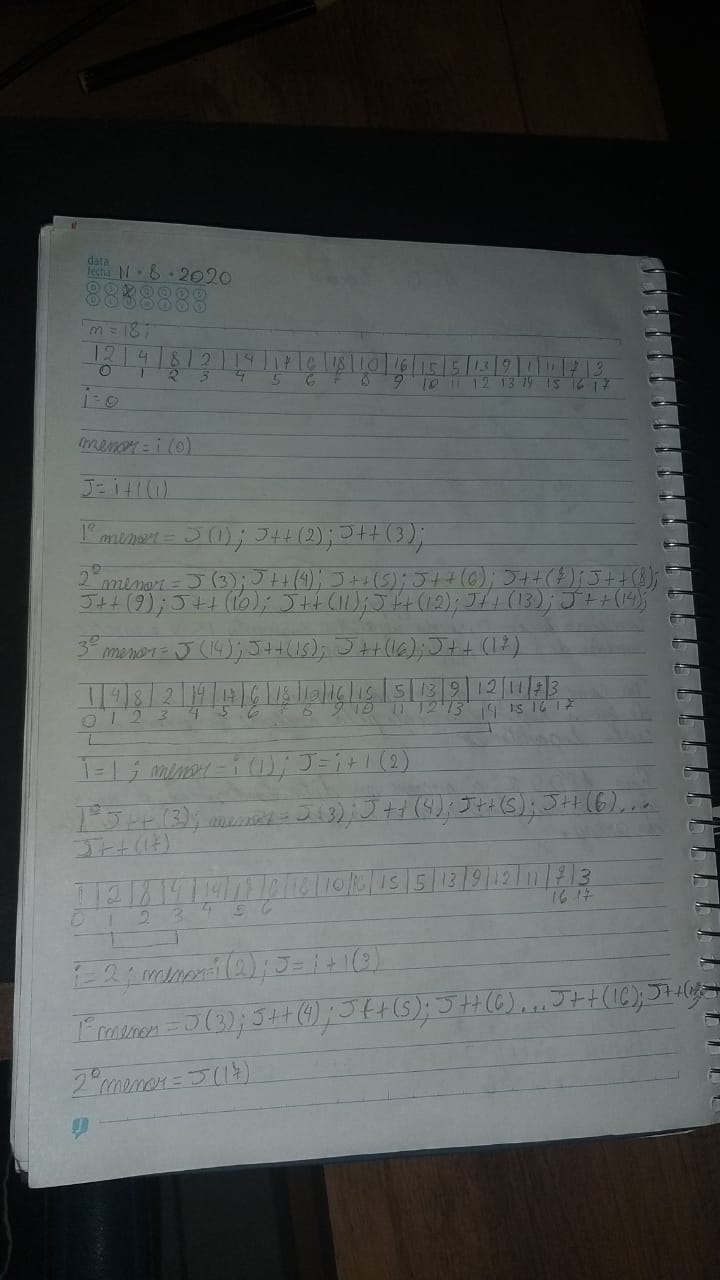 data
fecha 11 · 8 · 2020
n = 18;
12 | 4 | 8 | 2 | 14 | 17 | 6 | 18 | 10 | 16 | 15 | 5 | 13 | 9 | 1 | 11 | 7 | 3
0 1 2 3 4 5 6 7 8 9 10 11 12 13 14 15 16 17
i = 0
menor = i (0)
J = i+1 (1)
1º menor = J (1) ; J++ (2) ; J++ (3) ;
2º menor = J (3) ; J++ (4) ; J++ (5) ; J++ (6) ; J++ (7) ; J++ (8) ;
J++ (9) ; J++ (10) ; J++ (11) ; J++ (12) ; J++ (13) ; J++ (14) ;
3º menor = J (14) ; J++ (15) ; J++ (16) ; J++ (17)
1 | 4 | 8 | 2 | 14 | 17 | 6 | 18 | 10 | 16 | 15 | 5 | 13 | 9 | 12 | 11 | 7 | 3
0 1 2 3 4 5 6 7 8 9 10 11 12 13 14 15 16 17
i = 1 ; menor = i (1) ; J = i+1 (2)
1º J++ (3) ; menor = J (3) ; J++ (4) ; J++ (5) ; J++ (6) ...
J++ (17)
1 | 2 | 8 | 4 | 14 | 17 | 6 | 18 | 10 | 16 | 15 | 5 | 13 | 9 | 12 | 11 | 7 | 3
0 1 2 3 4 5 6 16 17
i = 2 ; menor = i (2) ; J = i+1 (3)
1º menor = J (3) ; J++ (4) ; J++ (5) ; J++ (6) ... J++ (16) ; J++ (17)
2º menor = J (17)